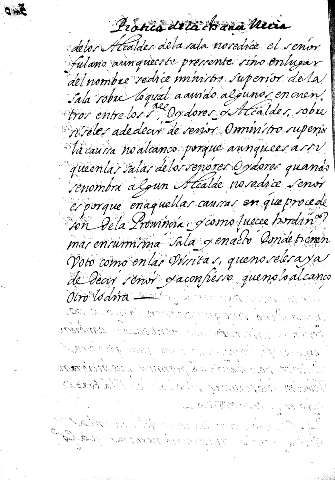 Pratica de la
de los Alcaldes de la sala no se dice el señor
fulano aunque este presente sino en lugar
del nombre se dice ministro superior de la
sala sobre lo qual a avido algunos encuen
tros entre los s.res Oydores y Alcaldes, sobre
si seles a de decir de señor, O ministro superior
la causa no alcanco porque aunque es assi
que en las salas de los señores Oydores quando
se nombra algun Alcalde no se dice Señor
es porque en aquellas causas en que procede
son de la Provincia, y como Jueces hordin.os
mas en su misma sala, y en acto donde tienen
Voto como en las Visitas, que no seles aya
de decir señor, ya confiesso que no lo alcanco
Otro lo dira